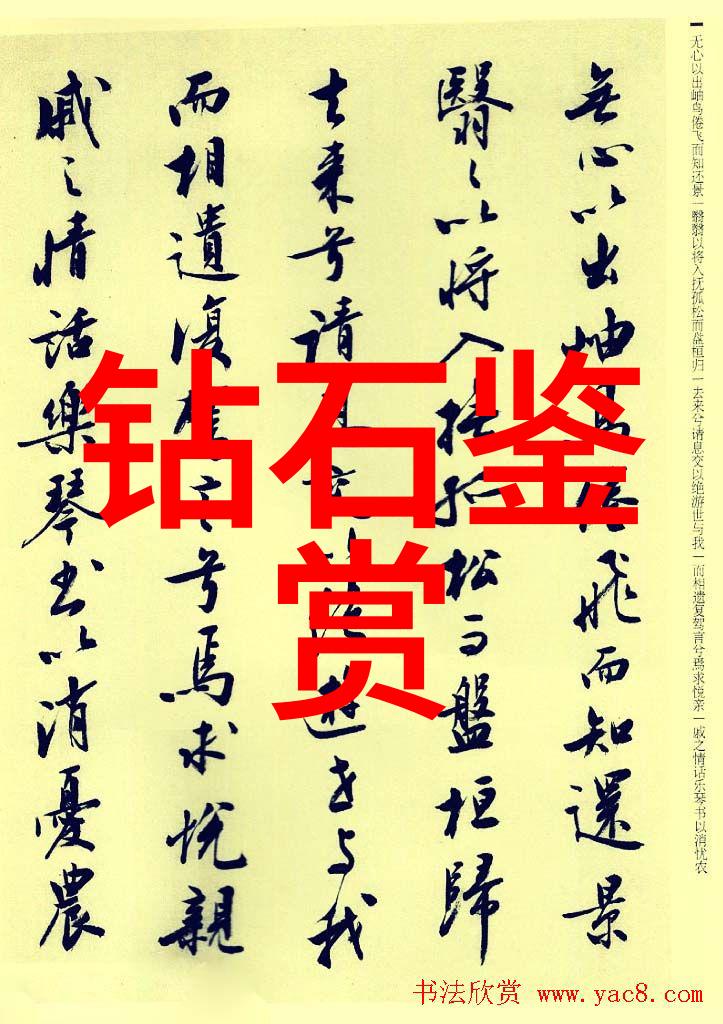 无心以出岫鸟倦飞而知还景一翳翳以将入抚孤松而盘桓归一去来兮请息交以绝游世与我一而相遗复驾言兮焉求悦亲一戚之情话乐琴书以消忧农
無心以出岫鳥倦飛而知還景
翳々以将入撫孤松而盤桓歸
去来兮請息交以絶遊世与我
而相遺復駕言兮焉求悦親
戚之情話樂琴書以消憂農
钻石鉴
赏
书法欣赏 www.yac8.com